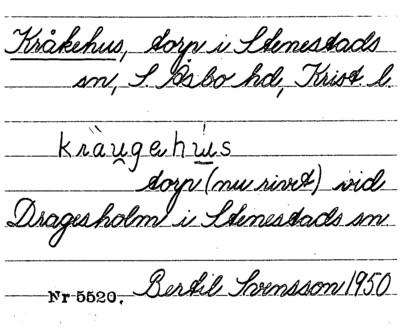 Kråkehus, torp i Stenestads
sn, S. Åsbo hd, Krist. l.
kràu̯gehú̲s
torp (nu rivet) vid
Dragesholm i Stenestads sn.
Nr 5520. Bertil Svensson 1950